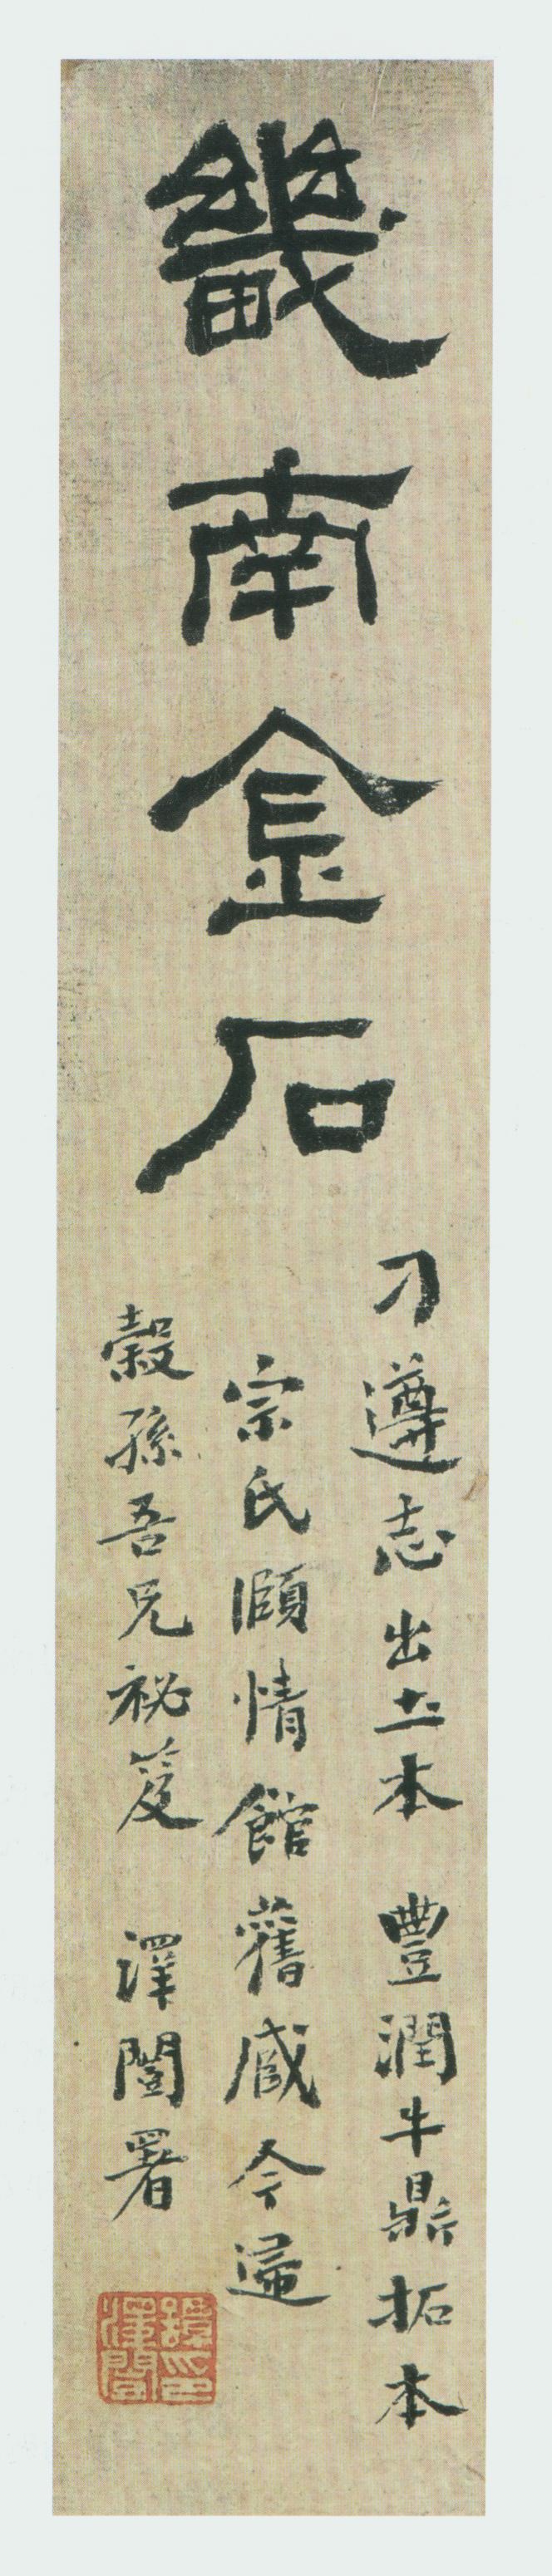 畿南金石
刁遵志出土本 豐潤牛鼎拓本
宗氏頤情館舊藏今歸
穀孫吾兄祕笈 澤闓署
譚澤闓印